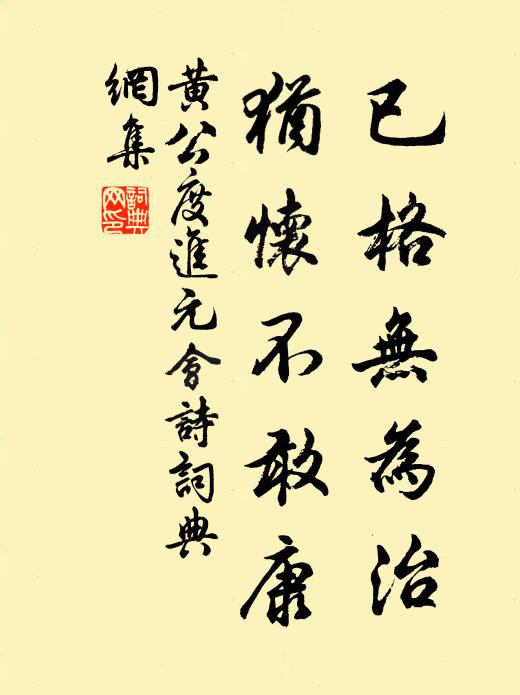 已格無為治
猶懷不敢康
黃公度進元會詩詞典
網集
詞典
网印